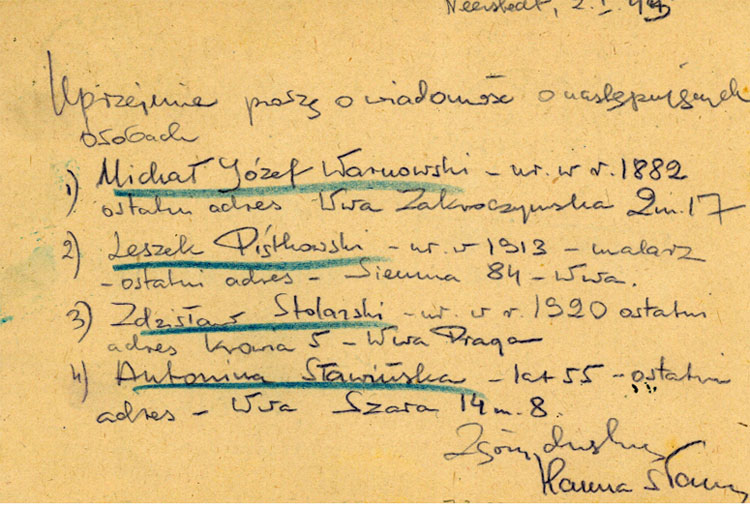 Neerstedt, 2.I.45
Uprzejmie proszę o wiadomość o następujących
osobach
1) Michał Józef Warnowski – ur. w r. 1882
ostatni adres Wwa Zakroczymska 2 m. 17
2) Leszek Piątkowski – ur. w 1913 – malarz
– ostatni adres – Sienna 84 – Wwa.
3) Zdzisław Stolarski – ur. w r. 1920 ostatni
adres Krowia 5 – Wwa Praga
4) Antonina Sławińska – lat 55 – ostatni
adres – Wwa Szara 14 m. 8.
Z góry dziękuję
Hanna